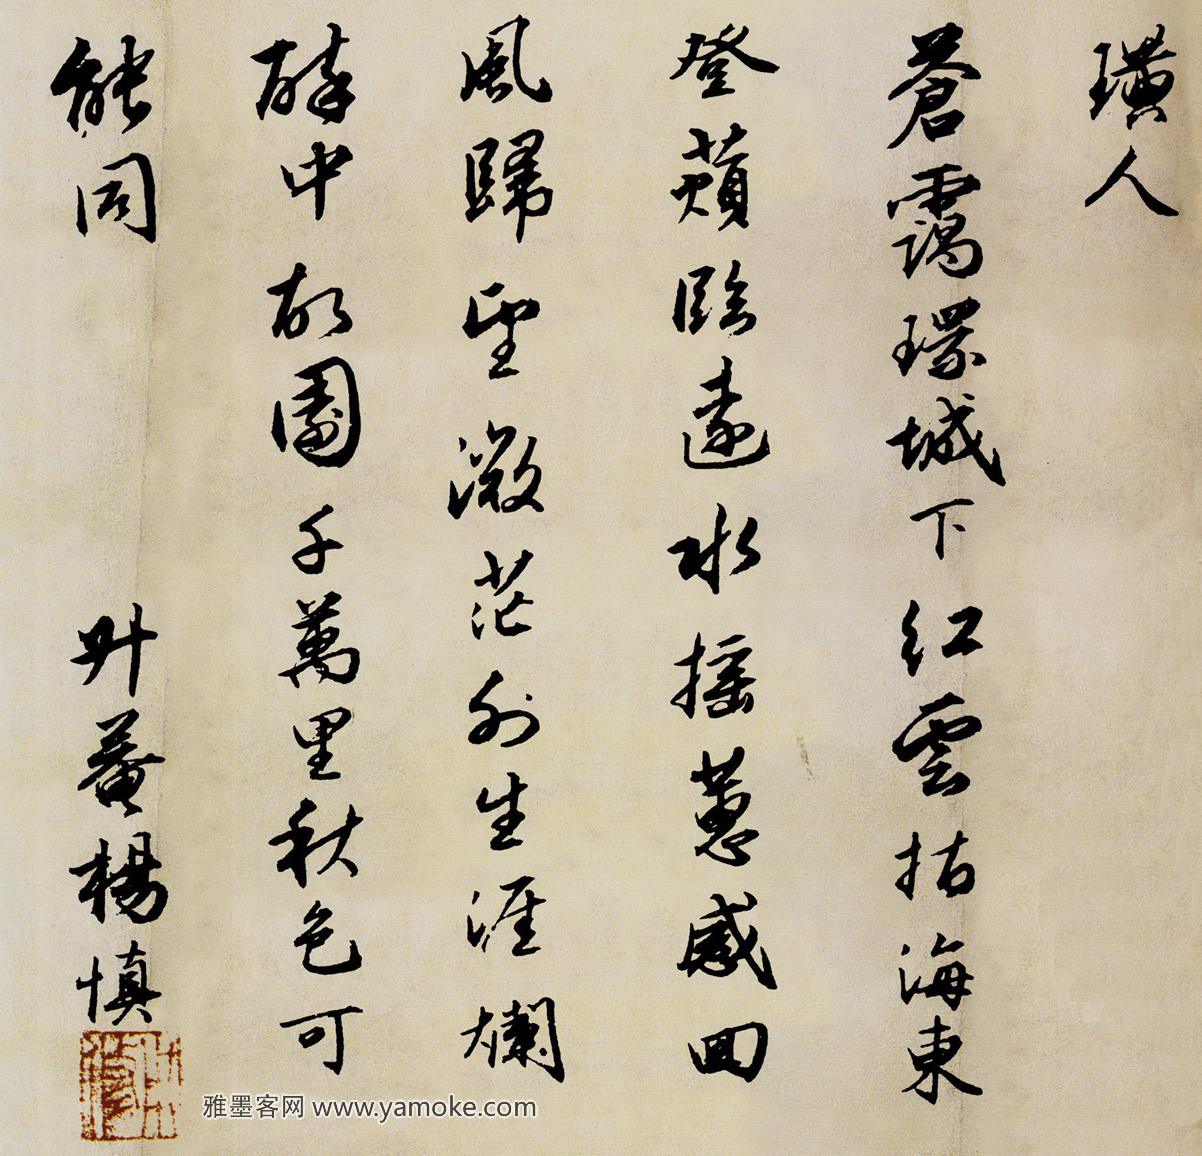 璜人
蒼靄環城下紅雲指海東
登蘋臨遠水摇蕙感回
風歸望微茫外生涯爛
醉中故園千萬里秋色可
能同
升菴楊慎
雅墨客网 www.yamoke.com